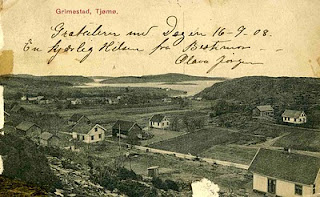 Grimestad, Tjømø.
Gratulerer med Dagen 16-9-08.
En kjærlig Hilsen fra
Olava